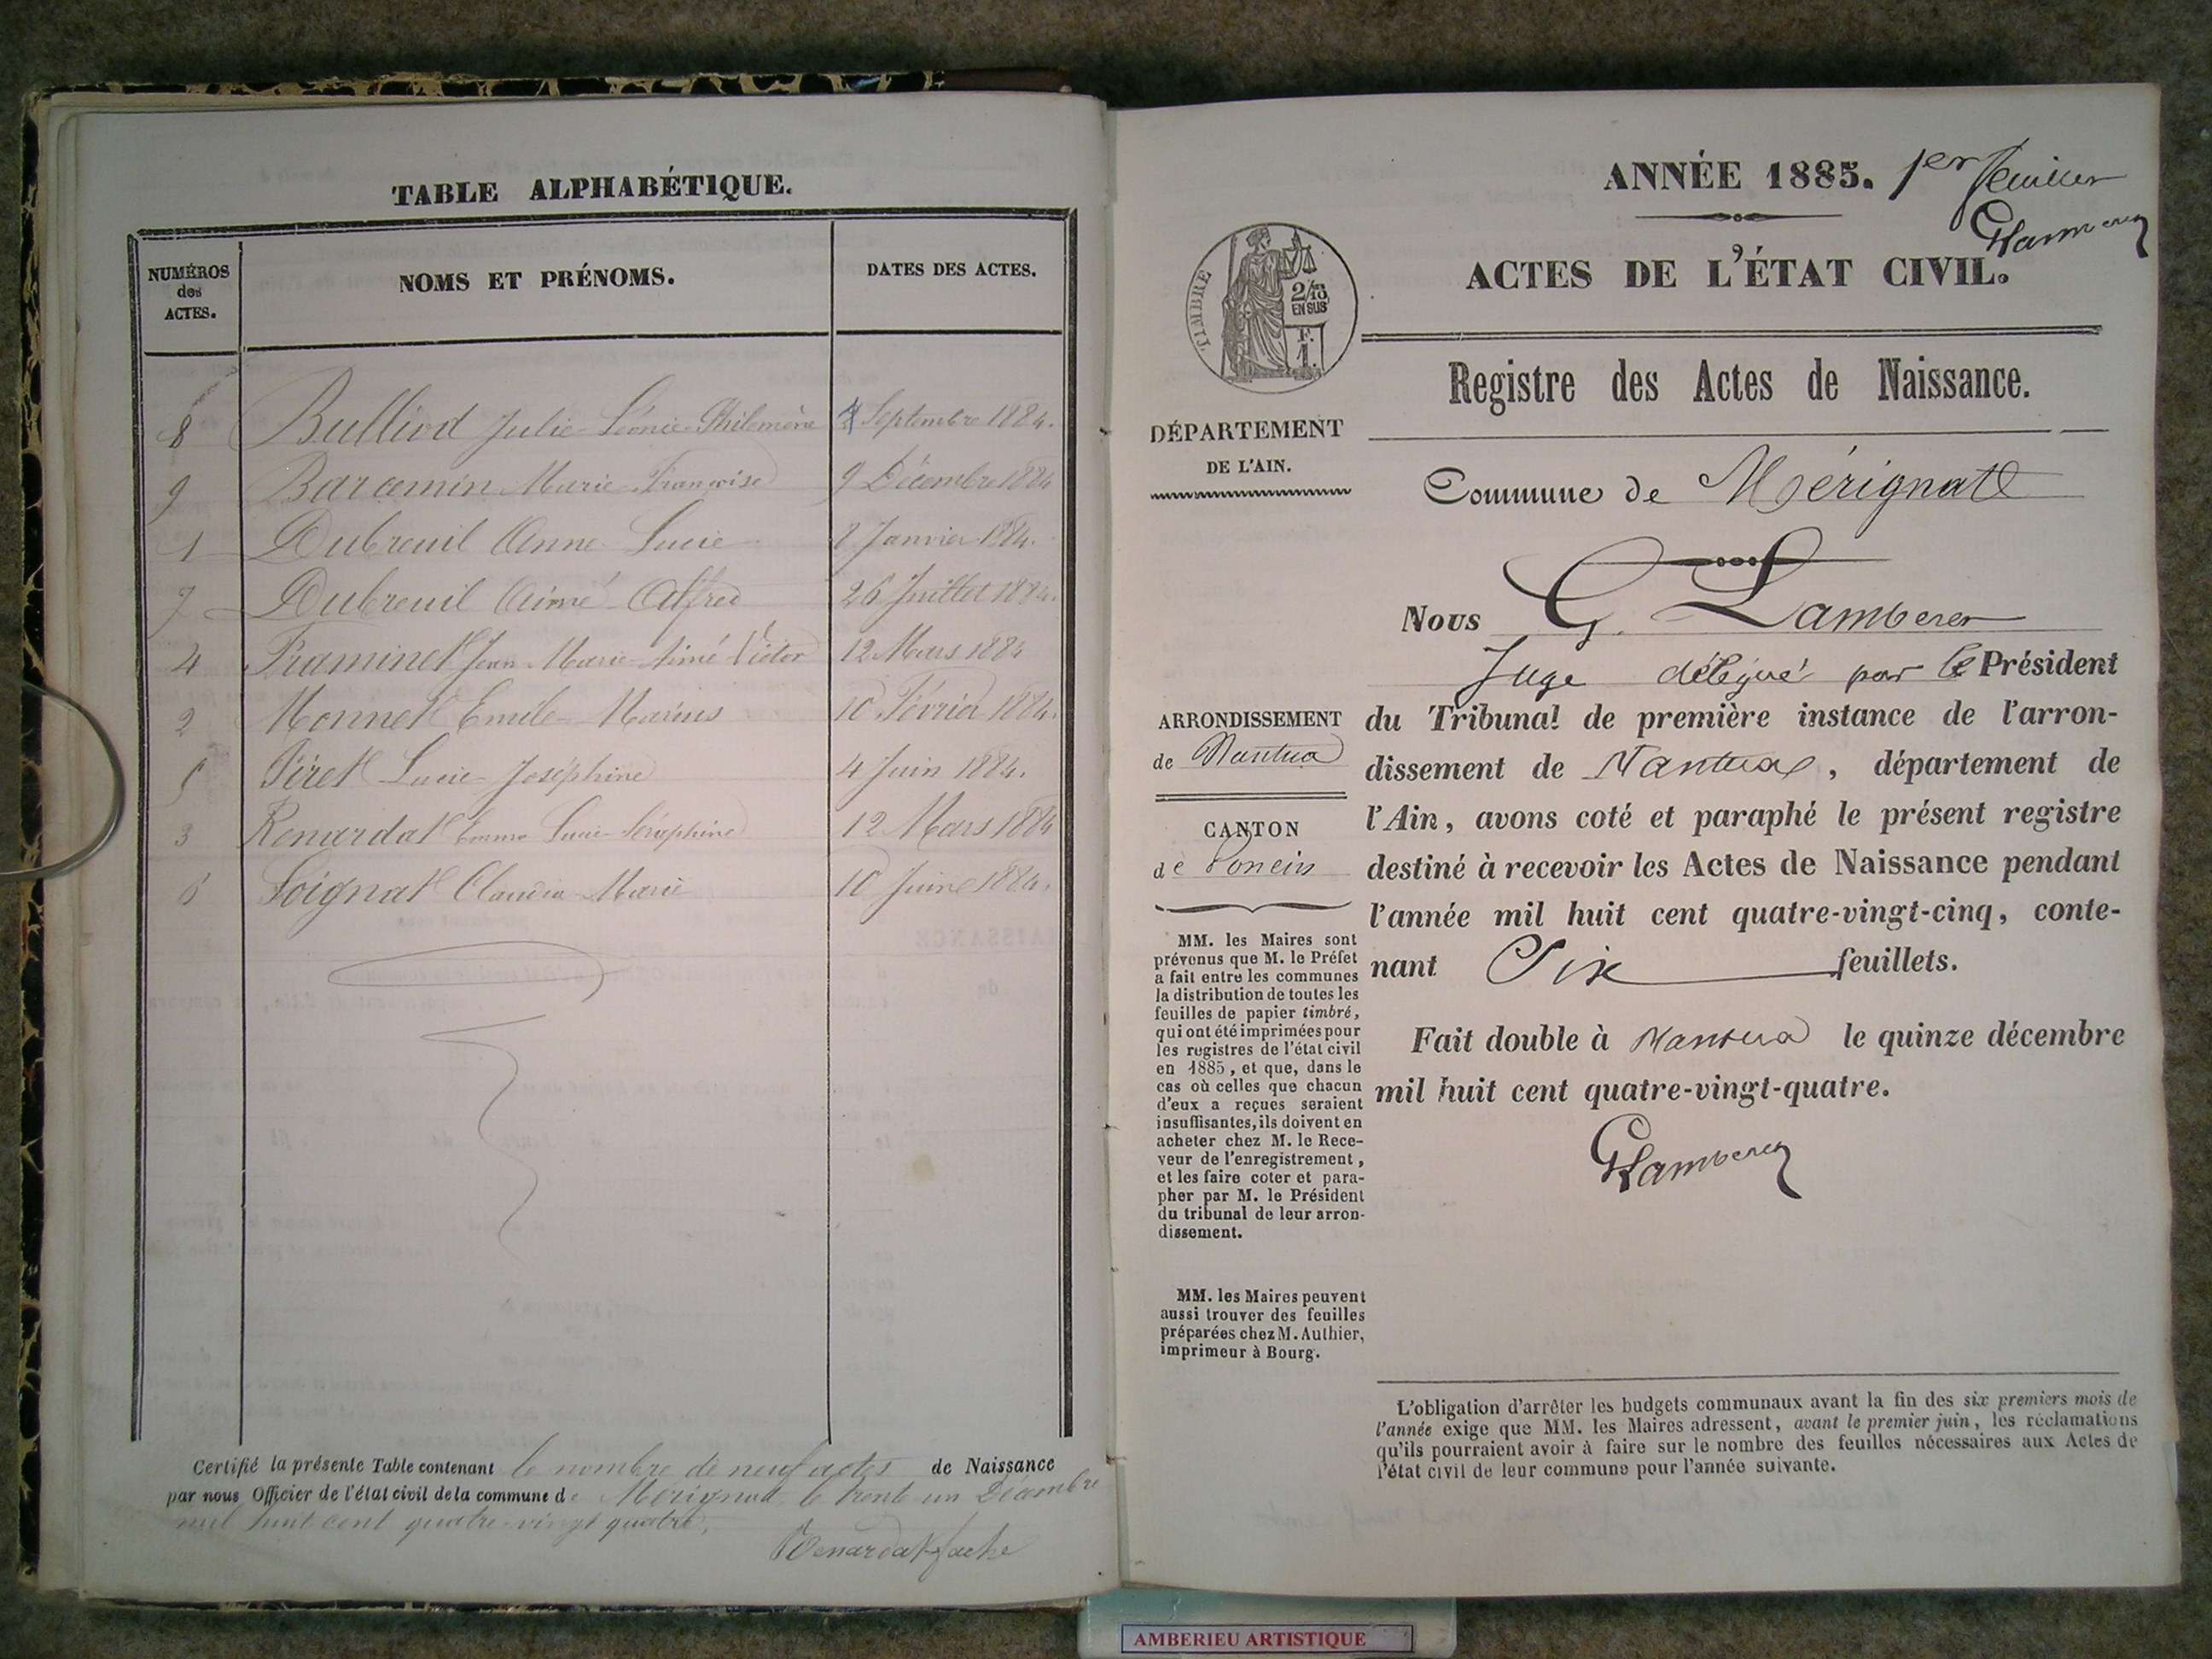 TABLE ALPHABÉTIQUE.
NUMÉROS
des
ACTES.
NOMS ET PRÉNOMS.
DATES DES ACTES.
8 Bulliod Julie Léonie Philomène 4 Septembre 1884.
9 Baracemin Marie Françoise 9 Décembre 1884
1 Dubreuil Anne Lucie 8 Janvier 1884.
7 Dubreuil Aimé Alfred 26 Juillet 1884.
4 Framinet Jean Marie Aimé Victor 12 Mars 1884
2 Monnet Emile Marius 10 Février 1884.
5 Piret Lucie Joséphine 4 Juin 1884.
3 Renardat Emma Lucie Séraphine 12 Mars 1884
6 Soignat Claudia Marie 10 Juin 1884.
Certifié la présente Table contenant le nombre de neuf actes de Naissance
par nous Officier de l'état civil de la commune de Mérignat le trente un Décembre
mil huit cent quatre-vingt quatre.
Renardat
ANNÉE 1885. 1er feuillet
GLamberet
ACTES DE L'ÉTAT CIVIL.
TIMBRE
2/10
EN SUS
F.
1.
Registre des Actes de Naissance.
DÉPARTEMENT
DE L'AIN.
Commune de Mérignat
Nous G. Lamberet
Juge délégué par le Président
du Tribunal de première instance de l'arron-
dissement de Nantua, département de
l'Ain, avons coté et paraphé le présent registre
destiné à recevoir les Actes de Naissance pendant
l'année mil huit cent quatre-vingt-cinq, conte-
nant Six feuillets.
Fait double à Nantua le quinze décembre
mil huit cent quatre-vingt-quatre.
GLamberet
ARRONDISSEMENT
de Nantua
CANTON
de Poncin
MM. les Maires sont
prévenus que M. le Préfet
a fait entre les communes
la distribution de toutes les
feuilles de papier timbré,
qui ont été imprimées pour
les registres de l'état civil
en 1885, et que, dans le
cas où celles que chacun
d'eux a reçues seraient
insuffisantes, ils doivent en
acheter chez M. le Rece-
veur de l'enregistrement,
et les faire coter et para-
pher par M. le Président
du tribunal de leur arron-
dissement.
MM. les Maires peuvent
aussi trouver des feuilles
préparées chez M. Authier,
imprimeur à Bourg.
L'obligation d'arrêter les budgets communaux avant la fin des six premiers mois de
l'année exige que MM. les Maires adressent, avant le premier juin, les réclamations
qu'ils pourraient avoir à faire sur le nombre des feuilles nécessaires aux Actes de
l'état civil de leur commune pour l'année suivante.
AMBERIEU ARTISTIQUE